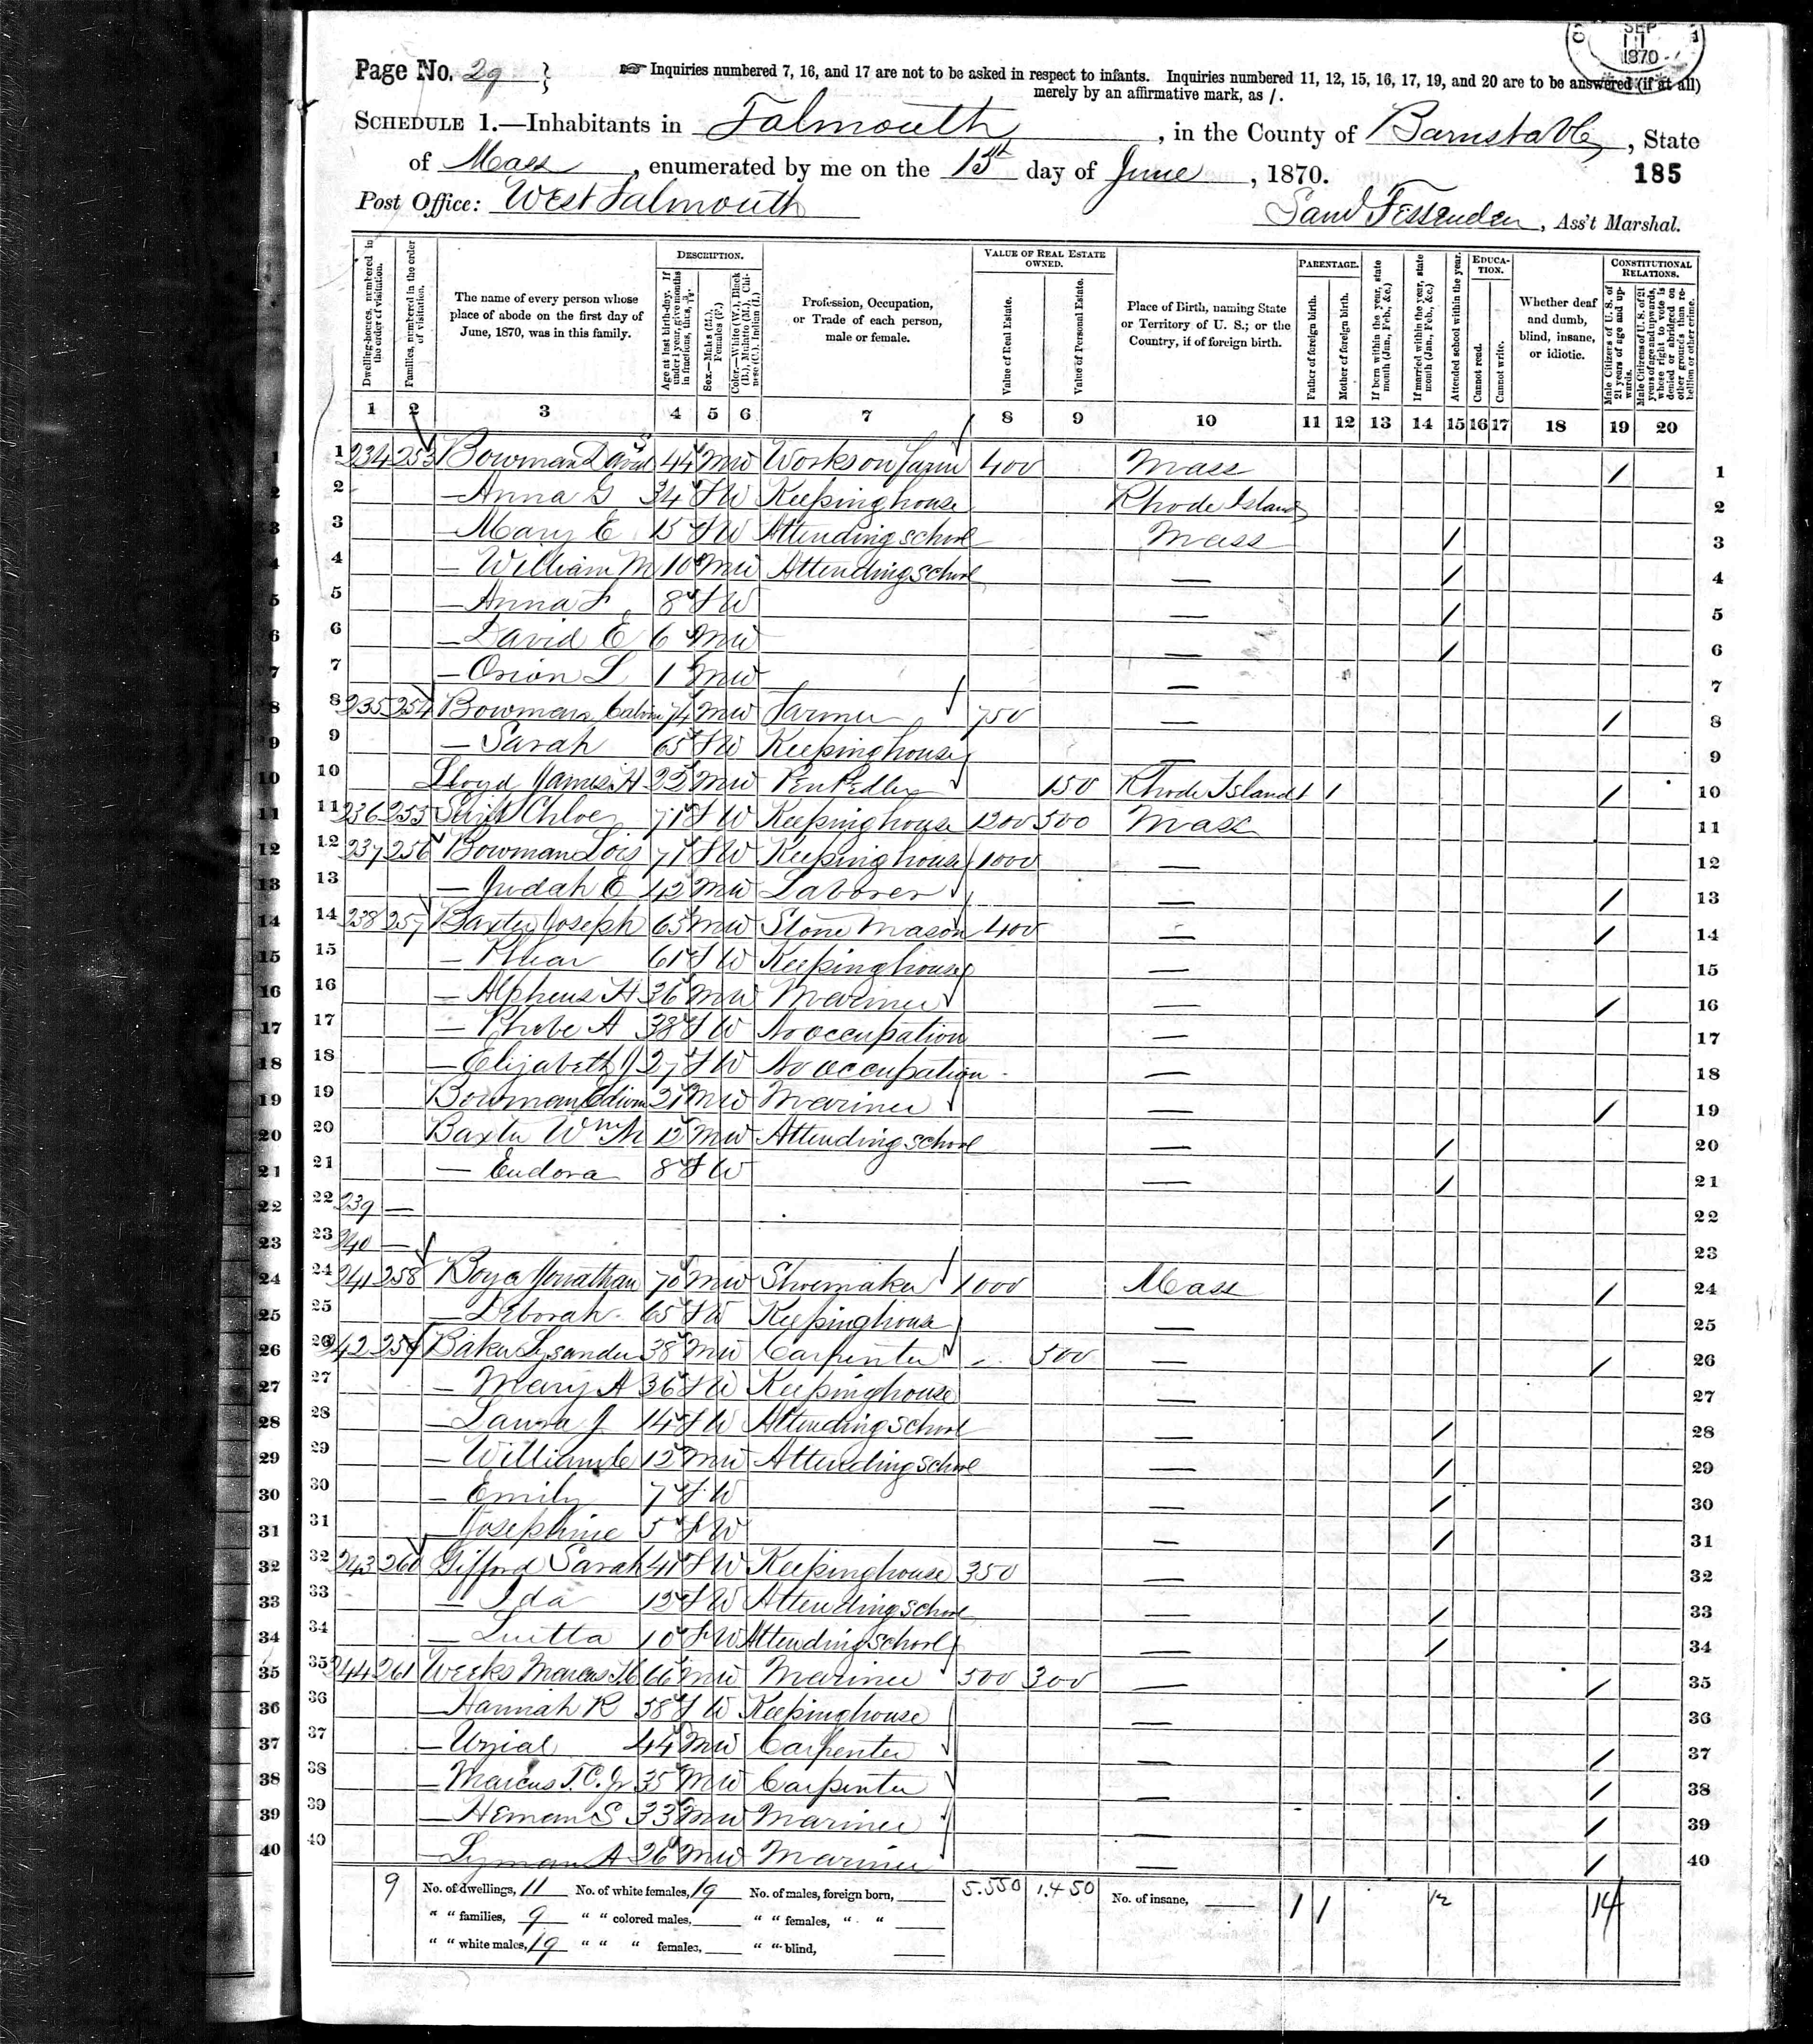 SEP 11 1870
Page No. 29 } ☞ Inquiries numbered 7, 16, and 17 are not to be asked in respect to infants. Inquiries numbered 11, 12, 15, 16, 17, 19, and 20 are to be answered (if at all)
merely by an affirmative mark, as /.
SCHEDULE 1.—Inhabitants in Falmouth, in the County of Barnstable, State
of Mass, enumerated by me on the 15th day of June, 1870. 185
Post Office: West Falmouth Saml Fessenden, Ass't Marshal.
Dwelling-houses, numbered in the order of visitation.
Families, numbered in the order of visitation.
The name of every person whose place of abode on the first day of June, 1870, was in this family.
DESCRIPTION.
Age at last birth-day. If under 1 year, give months in fractions, thus, 3/12.
Sex.—Males (M.), Females (F.)
Color.—White (W.), Black (B.), Mulatto (M.), Chinese (C.), Indian (I.)
Profession, Occupation, or Trade of each person, male or female.
VALUE OF REAL ESTATE OWNED.
Value of Real Estate.
Value of Personal Estate.
Place of Birth, naming State or Territory of U. S.; or the Country, if of foreign birth.
PARENTAGE.
Father of foreign birth.
Mother of foreign birth.
If born within the year, state month (Jan., Feb., &c.)
If married within the year, state month (Jan., Feb., &c.)
Attended school within the year.
EDUCATION.
Cannot read.
Cannot write.
Whether deaf and dumb, blind, insane, or idiotic.
CONSTITUTIONAL RELATIONS.
Male Citizens of U. S. of 21 years of age and upwards.
Male Citizens of U. S. of 21 years of age and upwards, where right to vote is denied or abridged on other grounds than rebellion or other crime.
1 2 3 4 5 6 7 8 9 10 11 12 13 14 15 16 17 18 19 20
1 234 253 Bowman David 44 M W Works on farm 400 Mass / 1
2 — Anna G 34 F W Keeping house Rhode Island 2
3 — Mary E 15 F W Attending school Mass / 3
4 — William M 10 M W Attending school — / 4
5 — Anna F 8 F W — / 5
6 — David E 6 M W — / 6
7 — Orion L 1 M W — 7
8 235 254 Bowman Calvin 74 M W Farmer 750 — / 8
9 — Sarah 65 F W Keeping house — 9
10 Lloyd James H 25 M W Pen Pedler 150 Rhode Island / / / 10
11 236 255 Swift Chloe 71 F W Keeping house 1200 500 Mass 11
12 237 256 Bowman Lois 71 F W Keeping house 1000 — 12
13 — Judah E 42 M W Laborer — / 13
14 238 257 Baxter Joseph 65 M W Stone Mason 400 — / 14
15 — 61 F W Keeping house — 15
16 — Alpheus H 36 M W Mariner — / 16
17 — Phebe A 38 F W No occupation — 17
18 — Elizabeth J 27 F W No occupation — 18
19 Bowman Edwin 21 M W Mariner — / 19
20 Baxter Wm 12 M W Attending school — / 20
21 — Eudora 8 F W — / 21
22 239 — 22
23 240 — 23
24 241 258 Jonathan 70 M W Shoemaker 1000 Mass / 24
25 — Deborah 65 F W Keeping house — 25
26 242 259 Baker Lysander 38 M W Carpenter 500 — / 26
27 — Mary A 36 F W Keeping house — 27
28 — Laura J 14 F W Attending school — / 28
29 — William C 12 M W Attending school — / 29
30 — Emily 7 F W — / 30
31 — Josephine 5 F W — / 31
32 243 260 Gifford Sarah 41 F W Keeping house 350 — 32
33 — Ida 12 F W Attending school — / 33
34 — Luitta 10 F W Attending school — / 34
35 244 261 Weeks Marcus T.C 66 M W Mariner 500 300 — / 35
36 — Hannah R 58 F W Keeping house — 36
37 — Uzial 44 M W Carpenter — / 37
38 — Marcus T. C. Jr 35 M W Carpenter — / 38
39 — Heman S 33 M W Mariner — / 39
40 — Lyman A 26 M W Mariner — / 40
9 No. of dwellings, 11 No. of white females, 19 No. of males, foreign born, 5.550 1.450 No. of insane, 1 1 12 14
" " families, 9 " " colored males, " " females, " "
" " white males, 19 " " " females, " " blind,